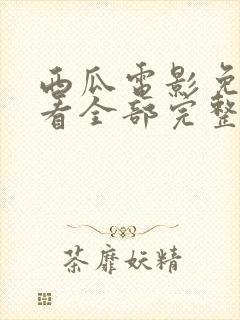 西瓜电影免
看全部完整
茶靡妖精